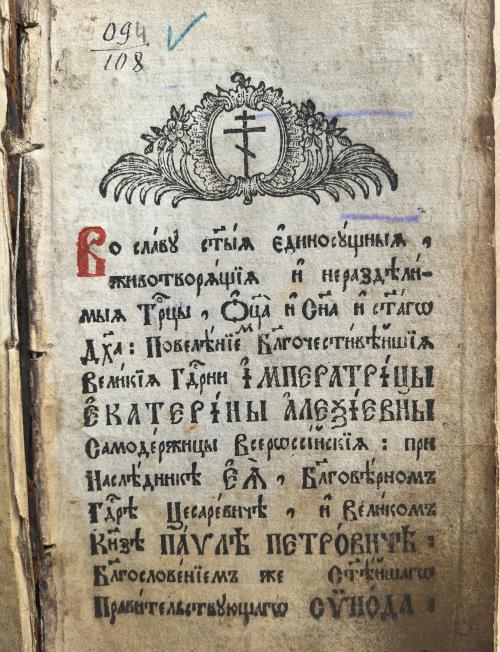 094
108
Во сла́вꙋ ст҃ы́ѧ є҆диносꙋ́щныѧ ,
животворѧ́щїѧ и҆ нераздѣли́-
мыѧ Трⷪ҇цы , Ѻ҆ц҃а̀ и҆ Сн҃а и҆ ст҃а́гѡ
Дх҃а : Повелѣ́нїемъ Бл҃гочести́вѣйшїѧ
Вели́кїѧ Гдⷭ҇рни И҆МПЕРАТРІ́ЦЫ
Є҆КАТЕРІ́НЫ А҆ЛЕѮІ́ЕВНЫ
Самоде́ржицы Всерѡссі́йскїѧ : при
Наслѣ́дникѣ Є҆Ѧ̀ , Бл҃говѣ́рномъ
Гдⷭ҇рѣ Цесаре́вичѣ , и҆ Вели́комъ
Кн҃зѣ ПА́ѴЛѢ ПЕТРО́ВИЧѢ :
Бл҃гослове́нїемъ же Ст҃ѣ́йшагѡ
Прави́тельствꙋющагѡ СѴНО́ДА :